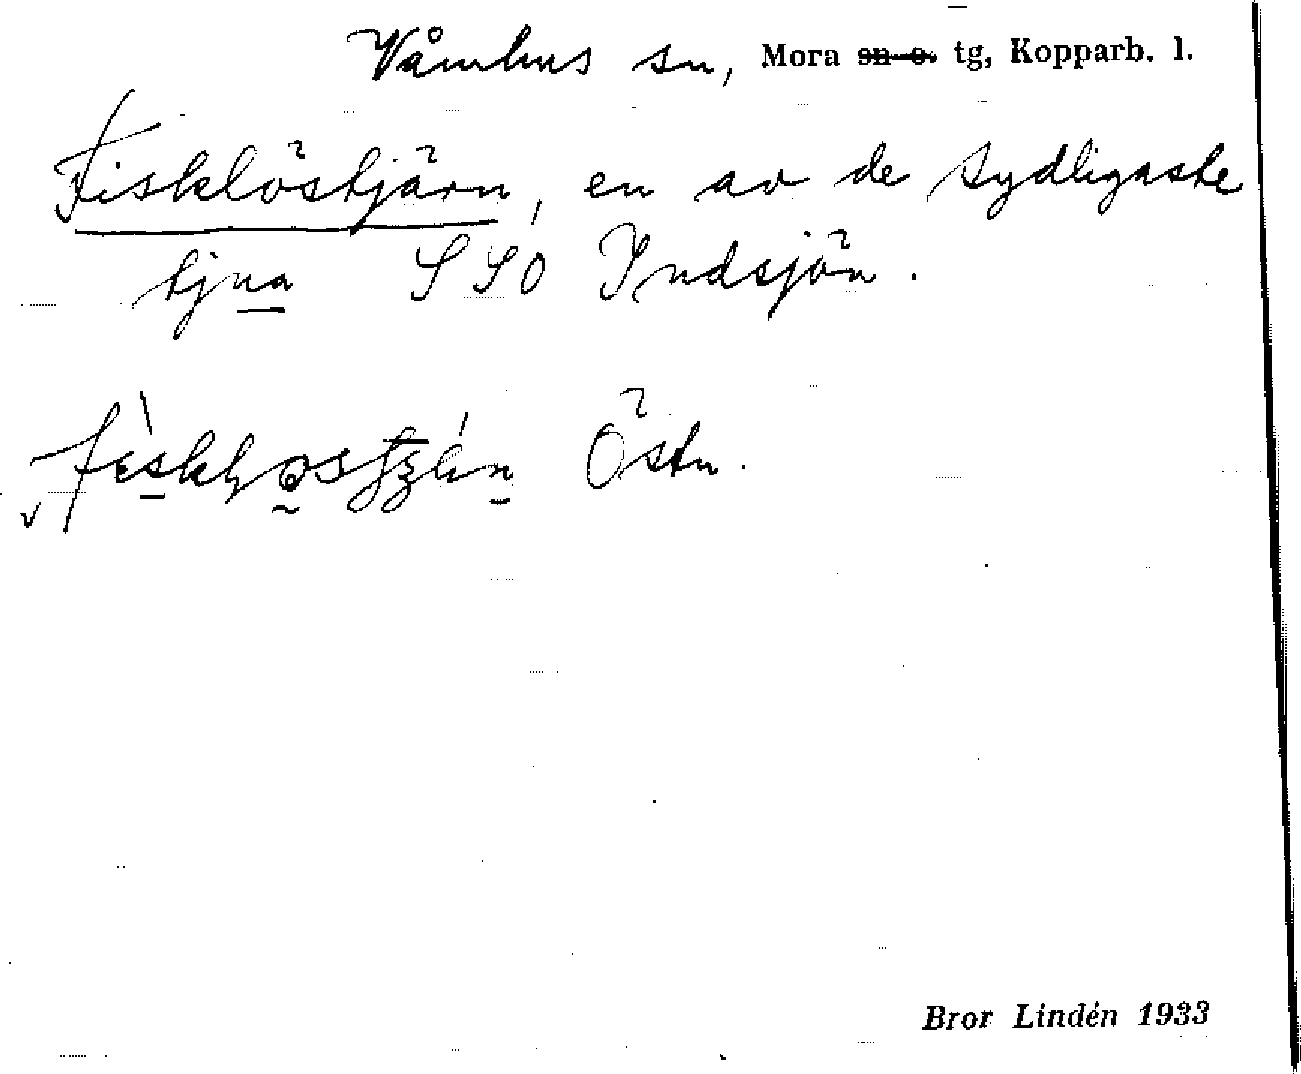 Våmhus sn, Mora sn o. tg, Kopparb. l.
Fisklöstjärn, en av de sydligaste
tjna SSO Indsjön.
Östn.
Bror Lindén 1933